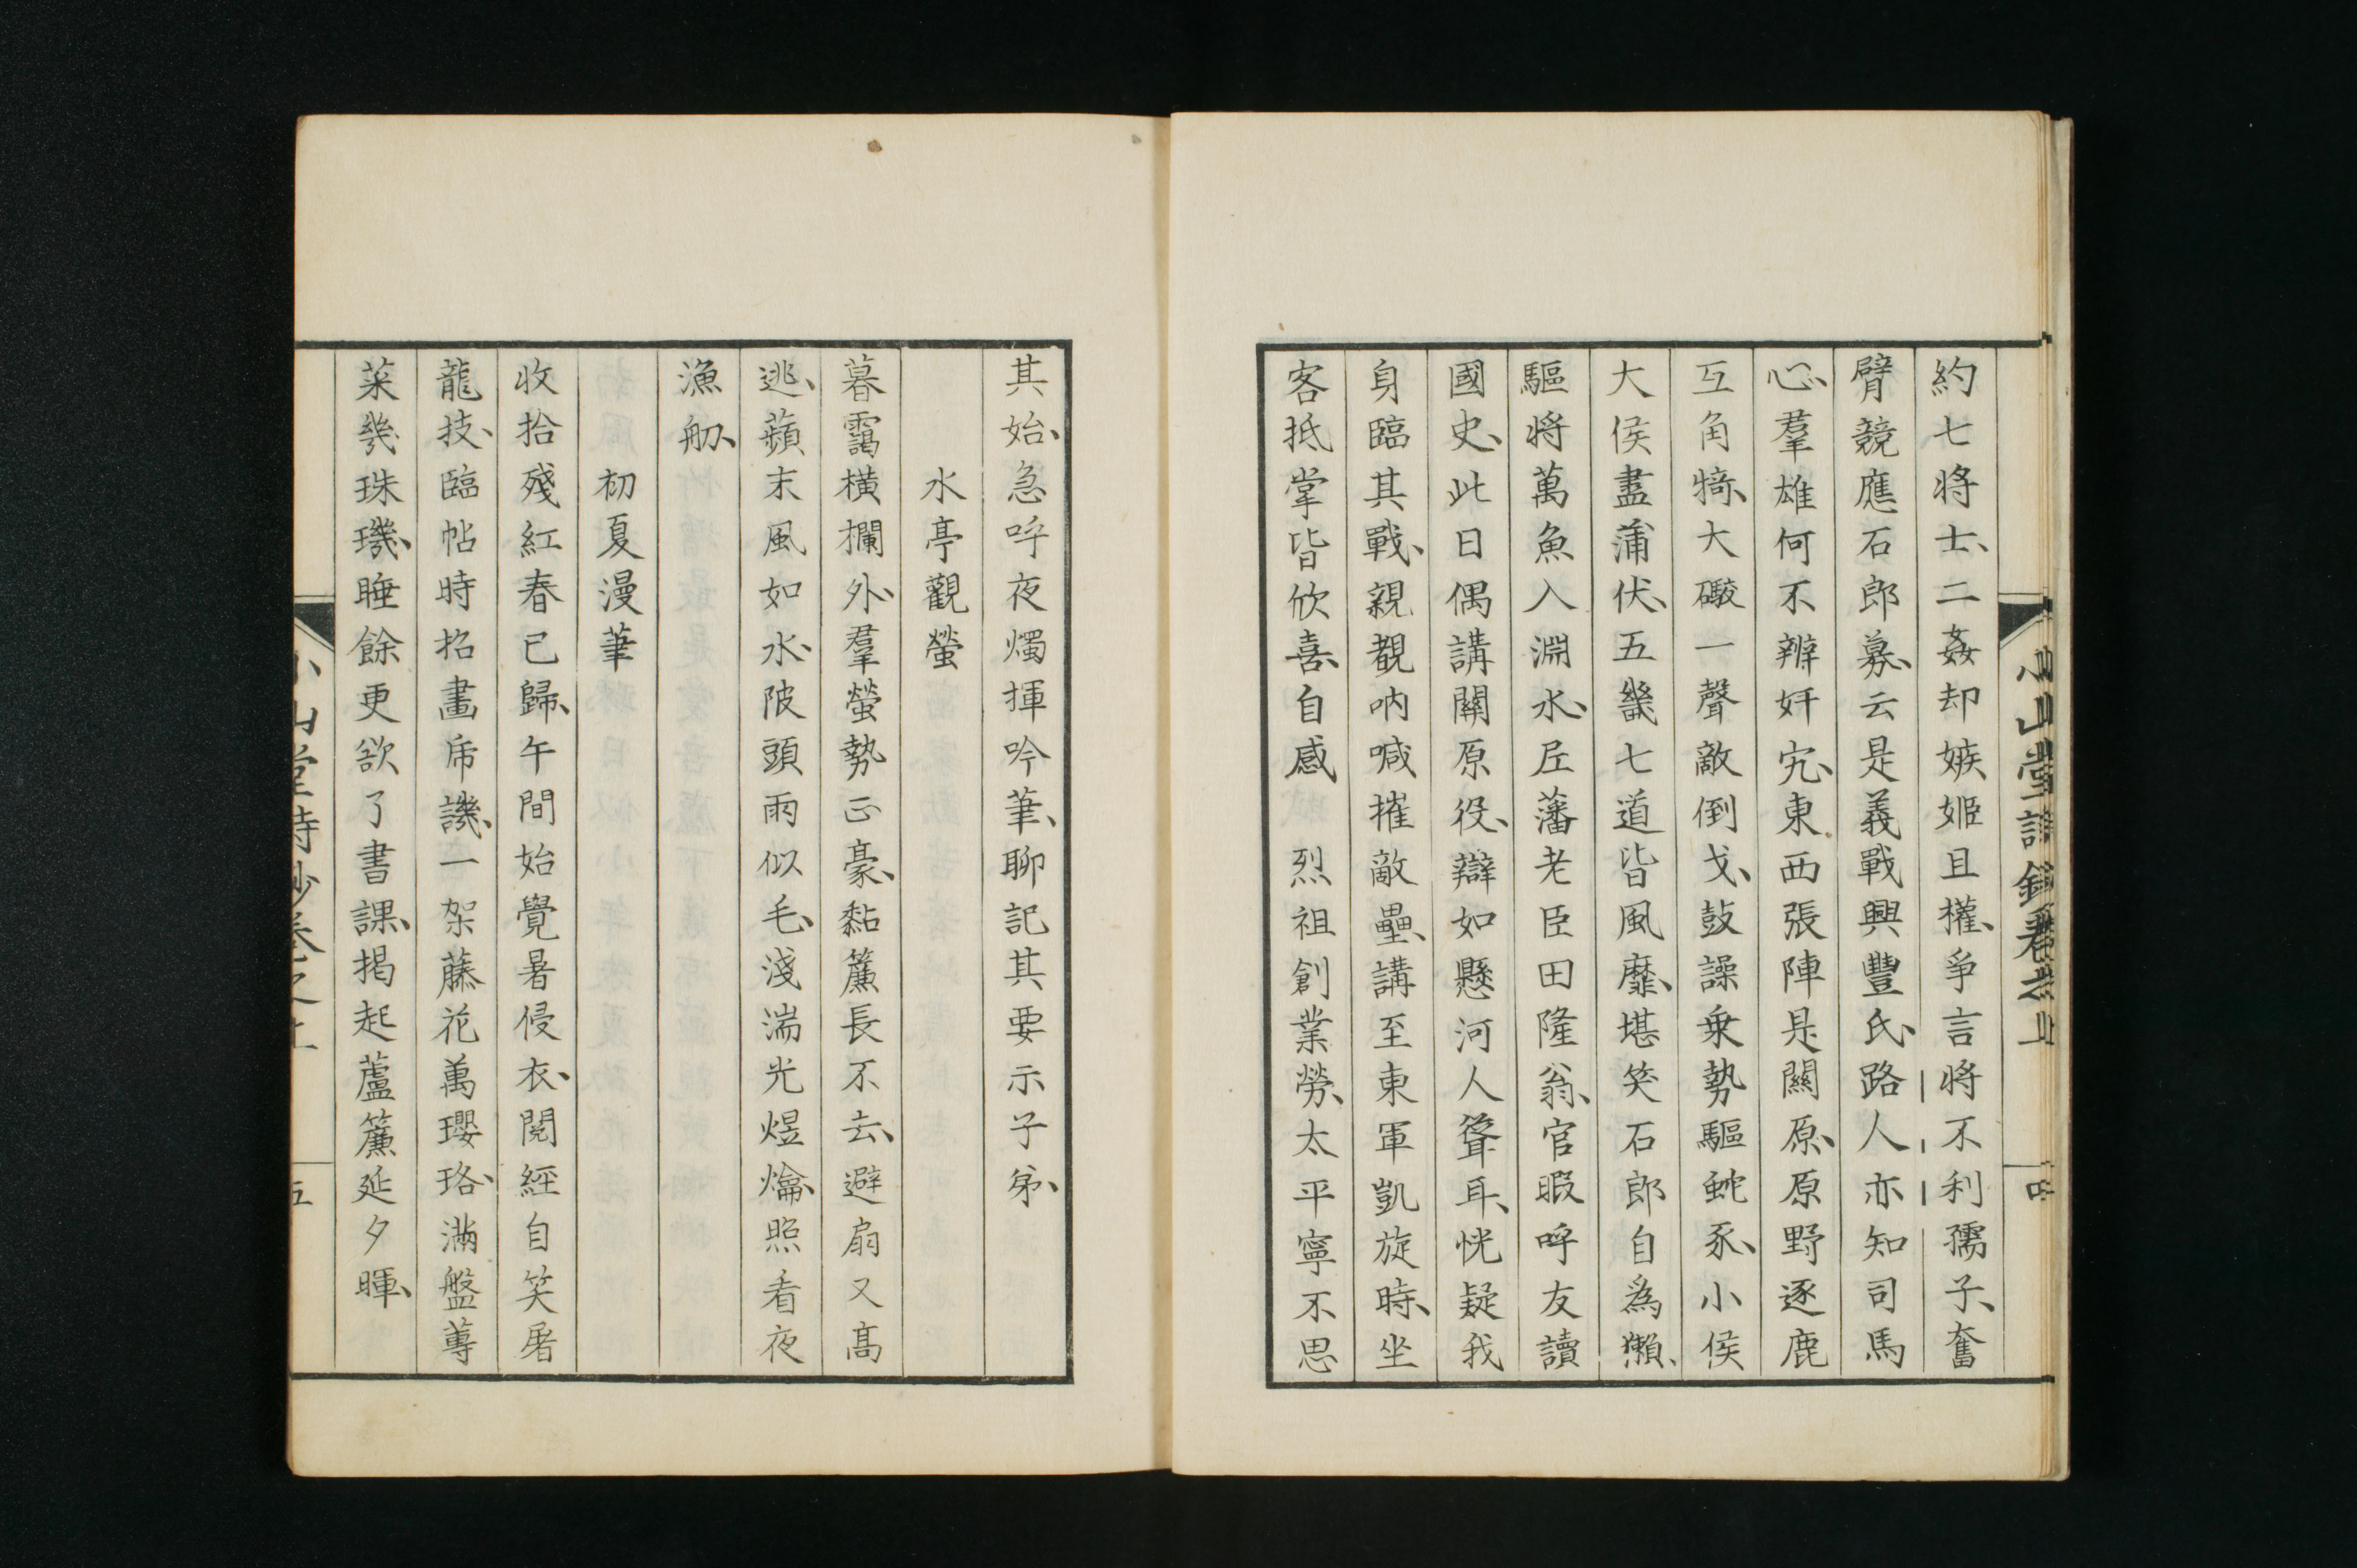 約七將士、二姦却嫉姬且權、爭言將不利孺子、奮
臂競應石郎募、云是義戰興豐氏、路人亦知司馬
心、羣雄何不辨奸宄、東西張陣是關原、原野逐鹿
互角犄、大礮一聲敵倒戈、鼓譟乘勢驅蛇豕、小侯
大侯盡蒲伏、五畿七道皆風靡、堪笑石郎自為獺、
驅將萬魚入淵水、丘藩老臣田隆翁、官暇呼友讀
國史、此日偶講關原役、辯如懸河人聳耳、恍疑我
身臨其戰、親覩吶喊摧敵壘、講至東軍凱旋時、坐
客抵掌皆欣喜、自感　烈祖創業勞、太平寧不思
其始、急呼夜燭揮吟筆、聊記其要示子弟、
水亭觀螢
暮靄横欄外、羣螢勢正豪、黏簾長不去、避扇又高
逃、蘋末風如水、陂頭雨似毛、淺湍光煜爚、照看夜
漁舠、
初夏漫筆
收拾殘紅春已歸、午間始覺暑侵衣、閱經自笑屠
龍技、臨帖時招畫虎譏、一架藤花萬瓔珞、滿盤蓴
菜幾珠璣、睡餘更欲了書課、揭起蘆簾延夕暉、
小山堂詩鈔卷之上
五